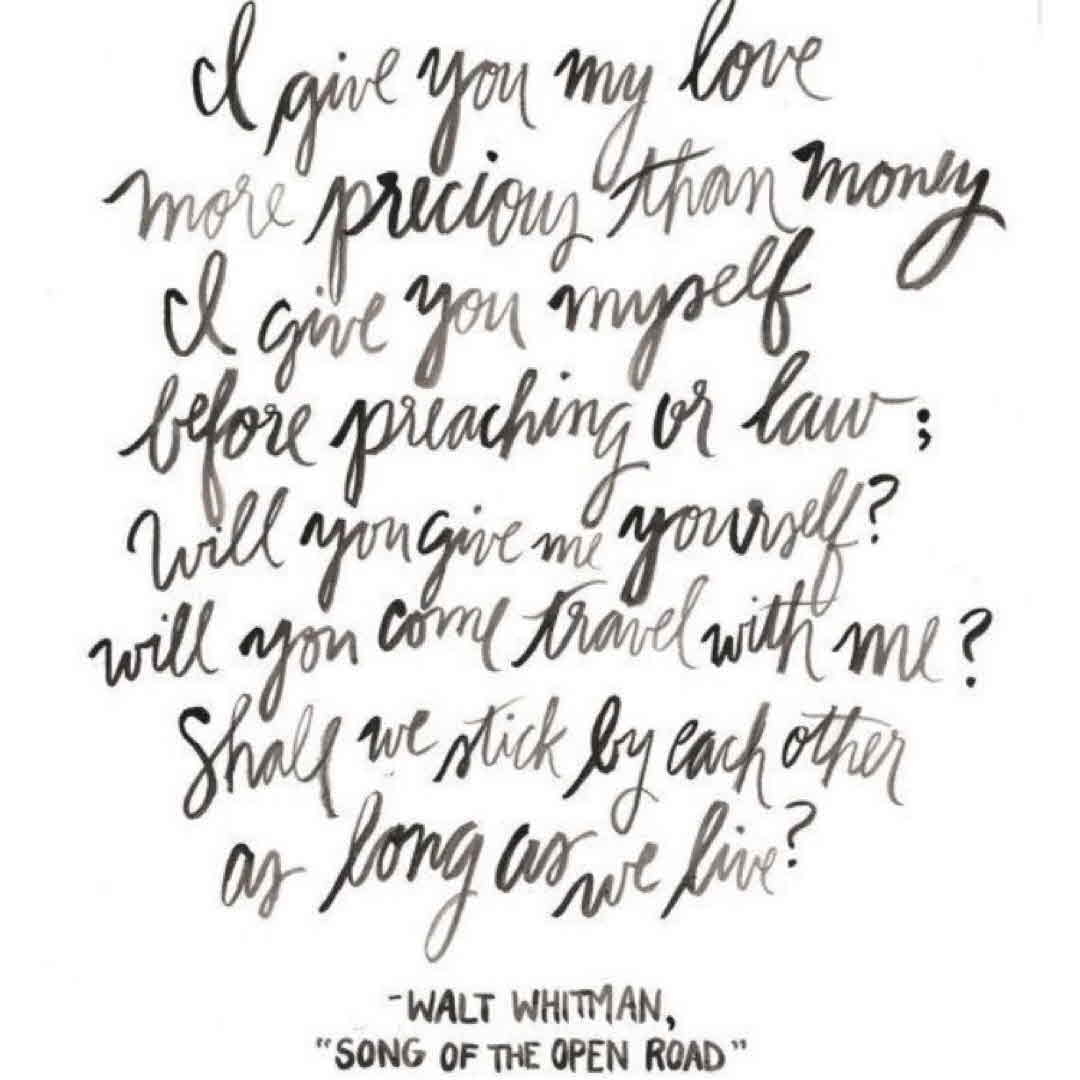 I give you my love
more precious than money
I give you myself
before preaching or law;
Will you give me yourself?
will you come travel with me?
Shall we stick by each other
as long as we live?
-WALT WHITMAN,
"SONG OF THE OPEN ROAD"